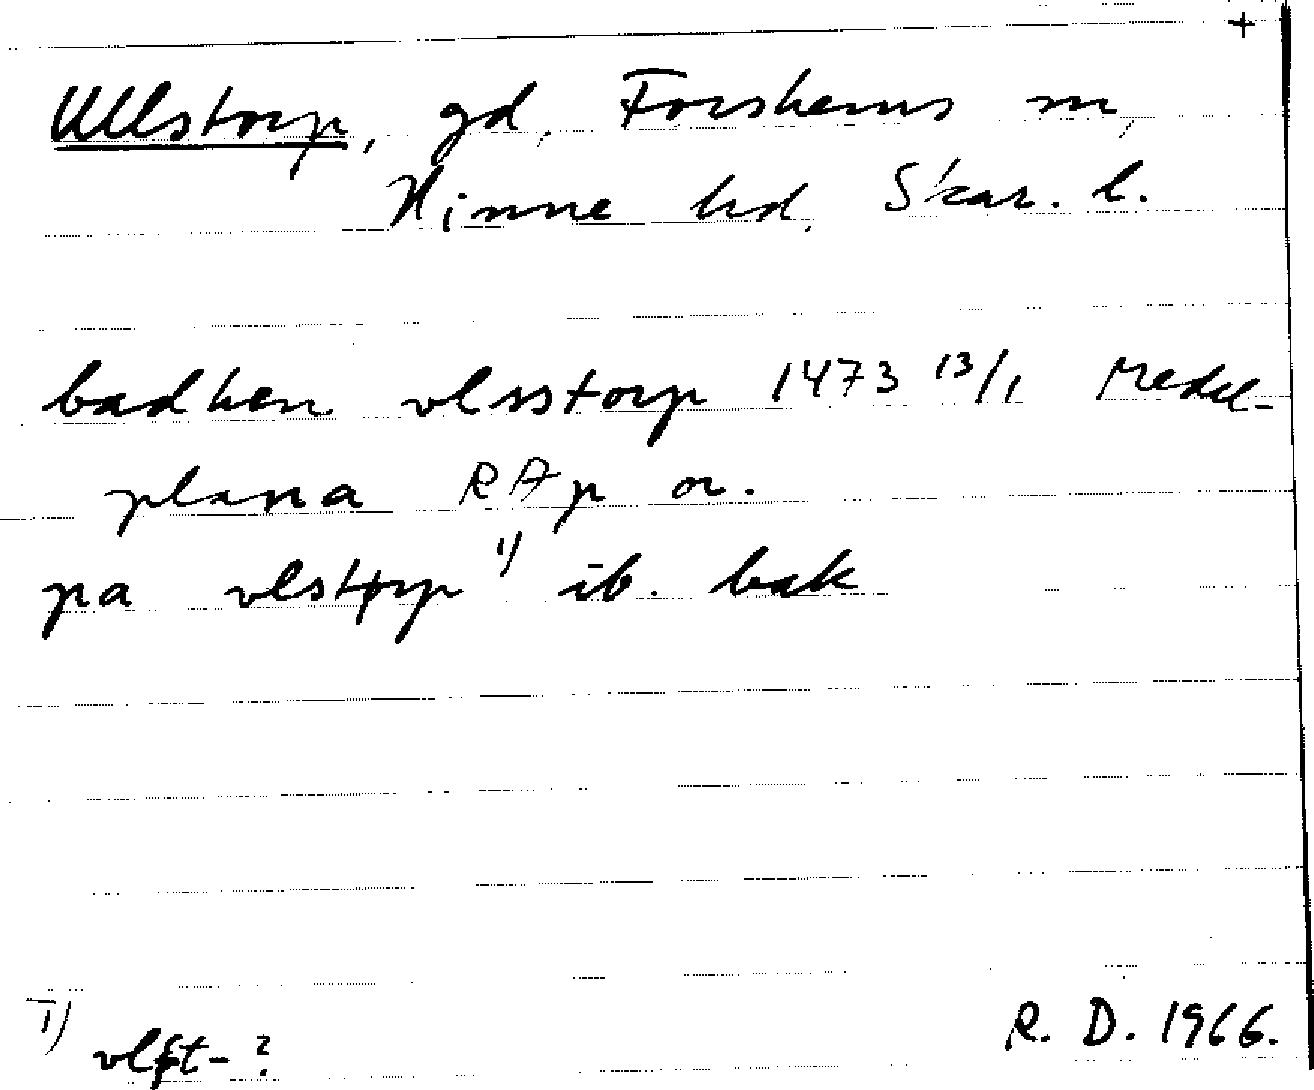 +
Ullstorp, gd, Forshems sn,
Kinne hd, Skar. l.
badhen vlsstorp 1473 13/1 Medel-
plana RAp or.
pa vlstorp 1) ib. bak
1) vlst- ?
R. D. 1966.